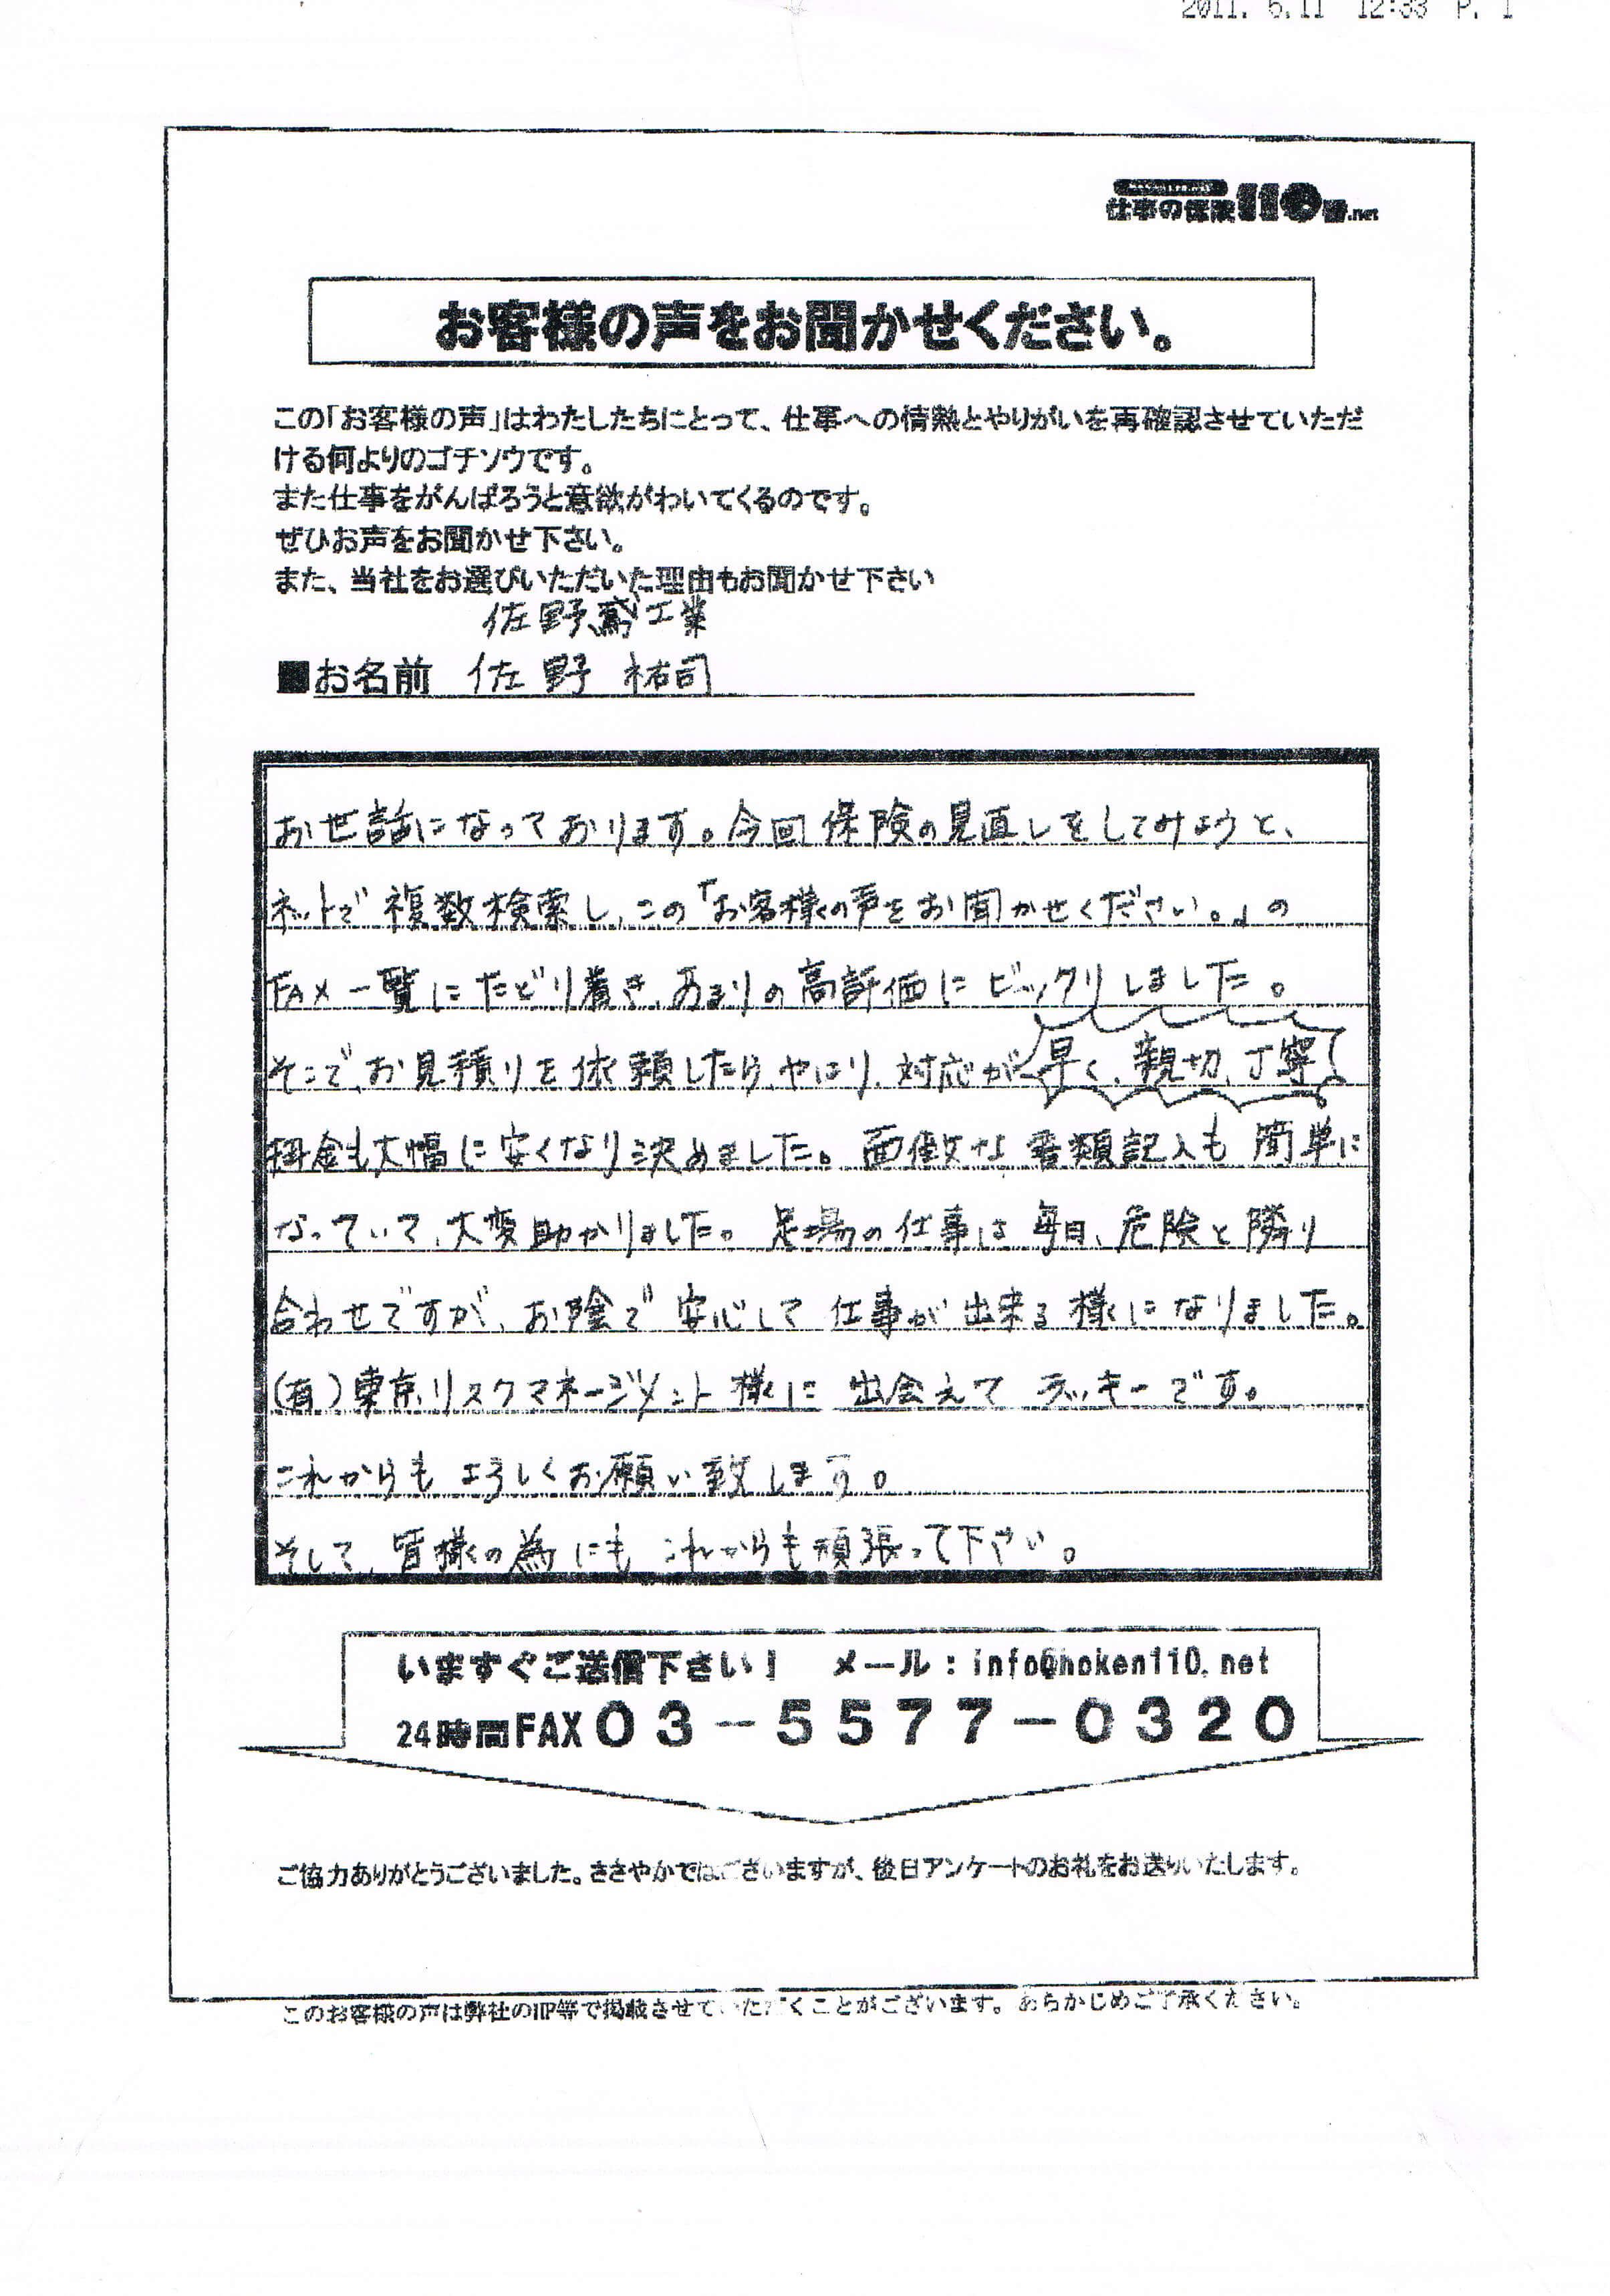 2011. 6.11 12:33 P. 1
仕事の保険110番.net
お客様の声をお聞かせください。
この「お客様の声」はわたしたちにとって、仕事への情熱とやりがいを再確認させていただ
ける何よりのゴチソウです。
また仕事をがんばろうと意欲がわいてくるのです。
ぜひお声をお聞かせ下さい。
また、当社をお選びいただいた理由もお聞かせ下さい
佐野鳶工業
■お名前 佐野 祐司
お世話になっております。今回保険の見直しをしてみようと、
ネットで複数検索し、この「お客様の声をお聞かせください。」の
FAX一覧にたどり着き、あまりの高評価にビックリしました。
そこで、お見積りを依頼したら、やはり、対応が早く、親切、丁寧!
掛金も大幅に安くなり決めました。面倒な書類記入も簡単に
なっていて、大変助かりました。足場の仕事は毎日、危険と隣り
合わせですが、お陰で安心して仕事が出来る様になりました。
(有)東京リスクマネージメント様に出会えてラッキーです。
これからもよろしくお願い致します。
そして、皆様の為にもこれからも頑張って下さい。
いますぐご送信下さい! メール:info@hoken110.net
24時間FAX03-5577-0320
ご協力ありがとうございました。ささやかではございますが、後日アンケートのお礼をお送りいたします。
このお客様の声は弊社のHP等で掲載させていただくことがございます。あらかじめご了承ください。